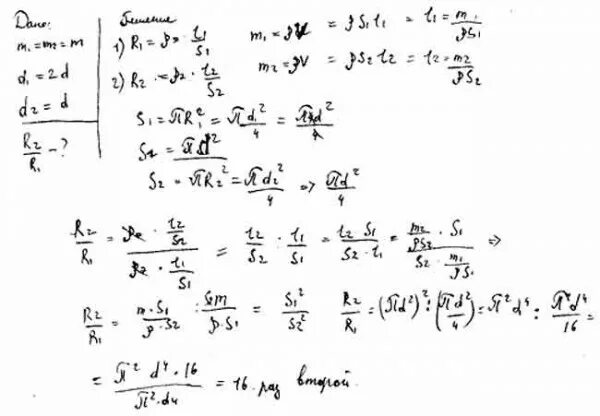 Дано:
m₁ = m₂ = m
d₁ = 2d
d₂ = d
R₂/R₁ - ?
Решение
1) R₁ = ρ · l₁/S₁
m₁ = ρV = ρS₁l₁ = l₁ = m₁/ρS₁
2) R₂ = ρ₂ · l₂/S₂
m₂ = ρV = ρS₂l₂ = l₂ = m₂/ρS₂
S₁ = πR₁² = πd₁²/4 = πd²
S₂ = πR₂² = πd₂²/4 => πd²/4
R₂/R₁ = (ρ · l₂/S₂)/(ρ · l₁/S₁) = l₂/S₂ : l₁/S₁ = l₂ · S₁/S₂ · l₁ = (m₂/ρS₂ · S₁)/(S₂ · m₁/ρS₁) =>
R₂/R₁ = m · S₁/ρ · S₂ : S₂m/ρ · S₁ = S₁²/S₂² R₂/R₁ = (πd²)² : (πd²/4) = π²d⁴ : π²d⁴/16 =
= π² d⁴ · 16/π² · d4 = 16 · раз второй.